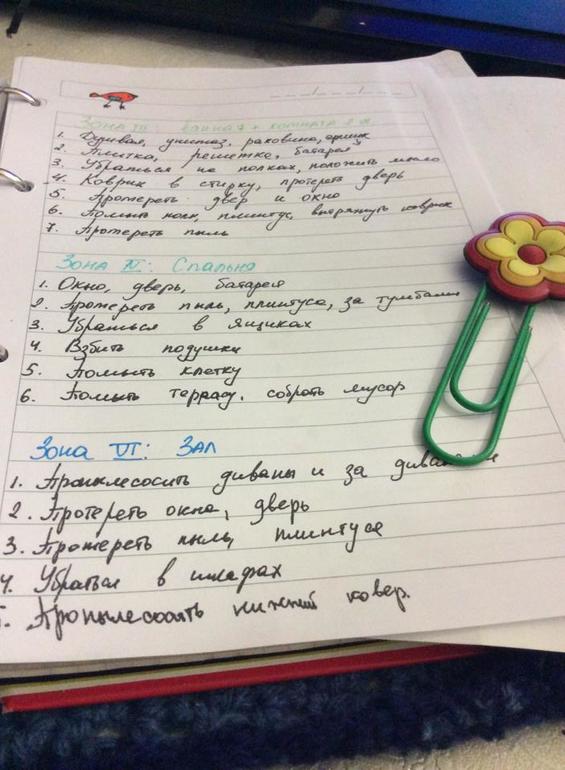 Зона III: ванная + комната
1. Душевая, унитаз, раковина,
2. Плитка, решетка, батарея
3. Убраться на полках, положить мыло
4. Коврик в стирку, протереть дверь
5. Протереть двер и окно
6. Помыть полы, плинтус, вытряхнуть коврик
7. Протереть пыль
Зона IV: Спальня
1. Окно, дверь, батарея
2. Протереть пыль, плинтуса, за тумбами
3. Убраться в ящиках
4. Взбить подушки
5. Помыть клетку
6. Помыть террасу, собрать мусор
Зона VI: ЗАЛ
1. Пропылесосить диваны и за
2. Протереть окна, дверь
3. Протереть пыль, плинтуса
4. Убраться в шкафах
Пропылесосить нижний ковер.